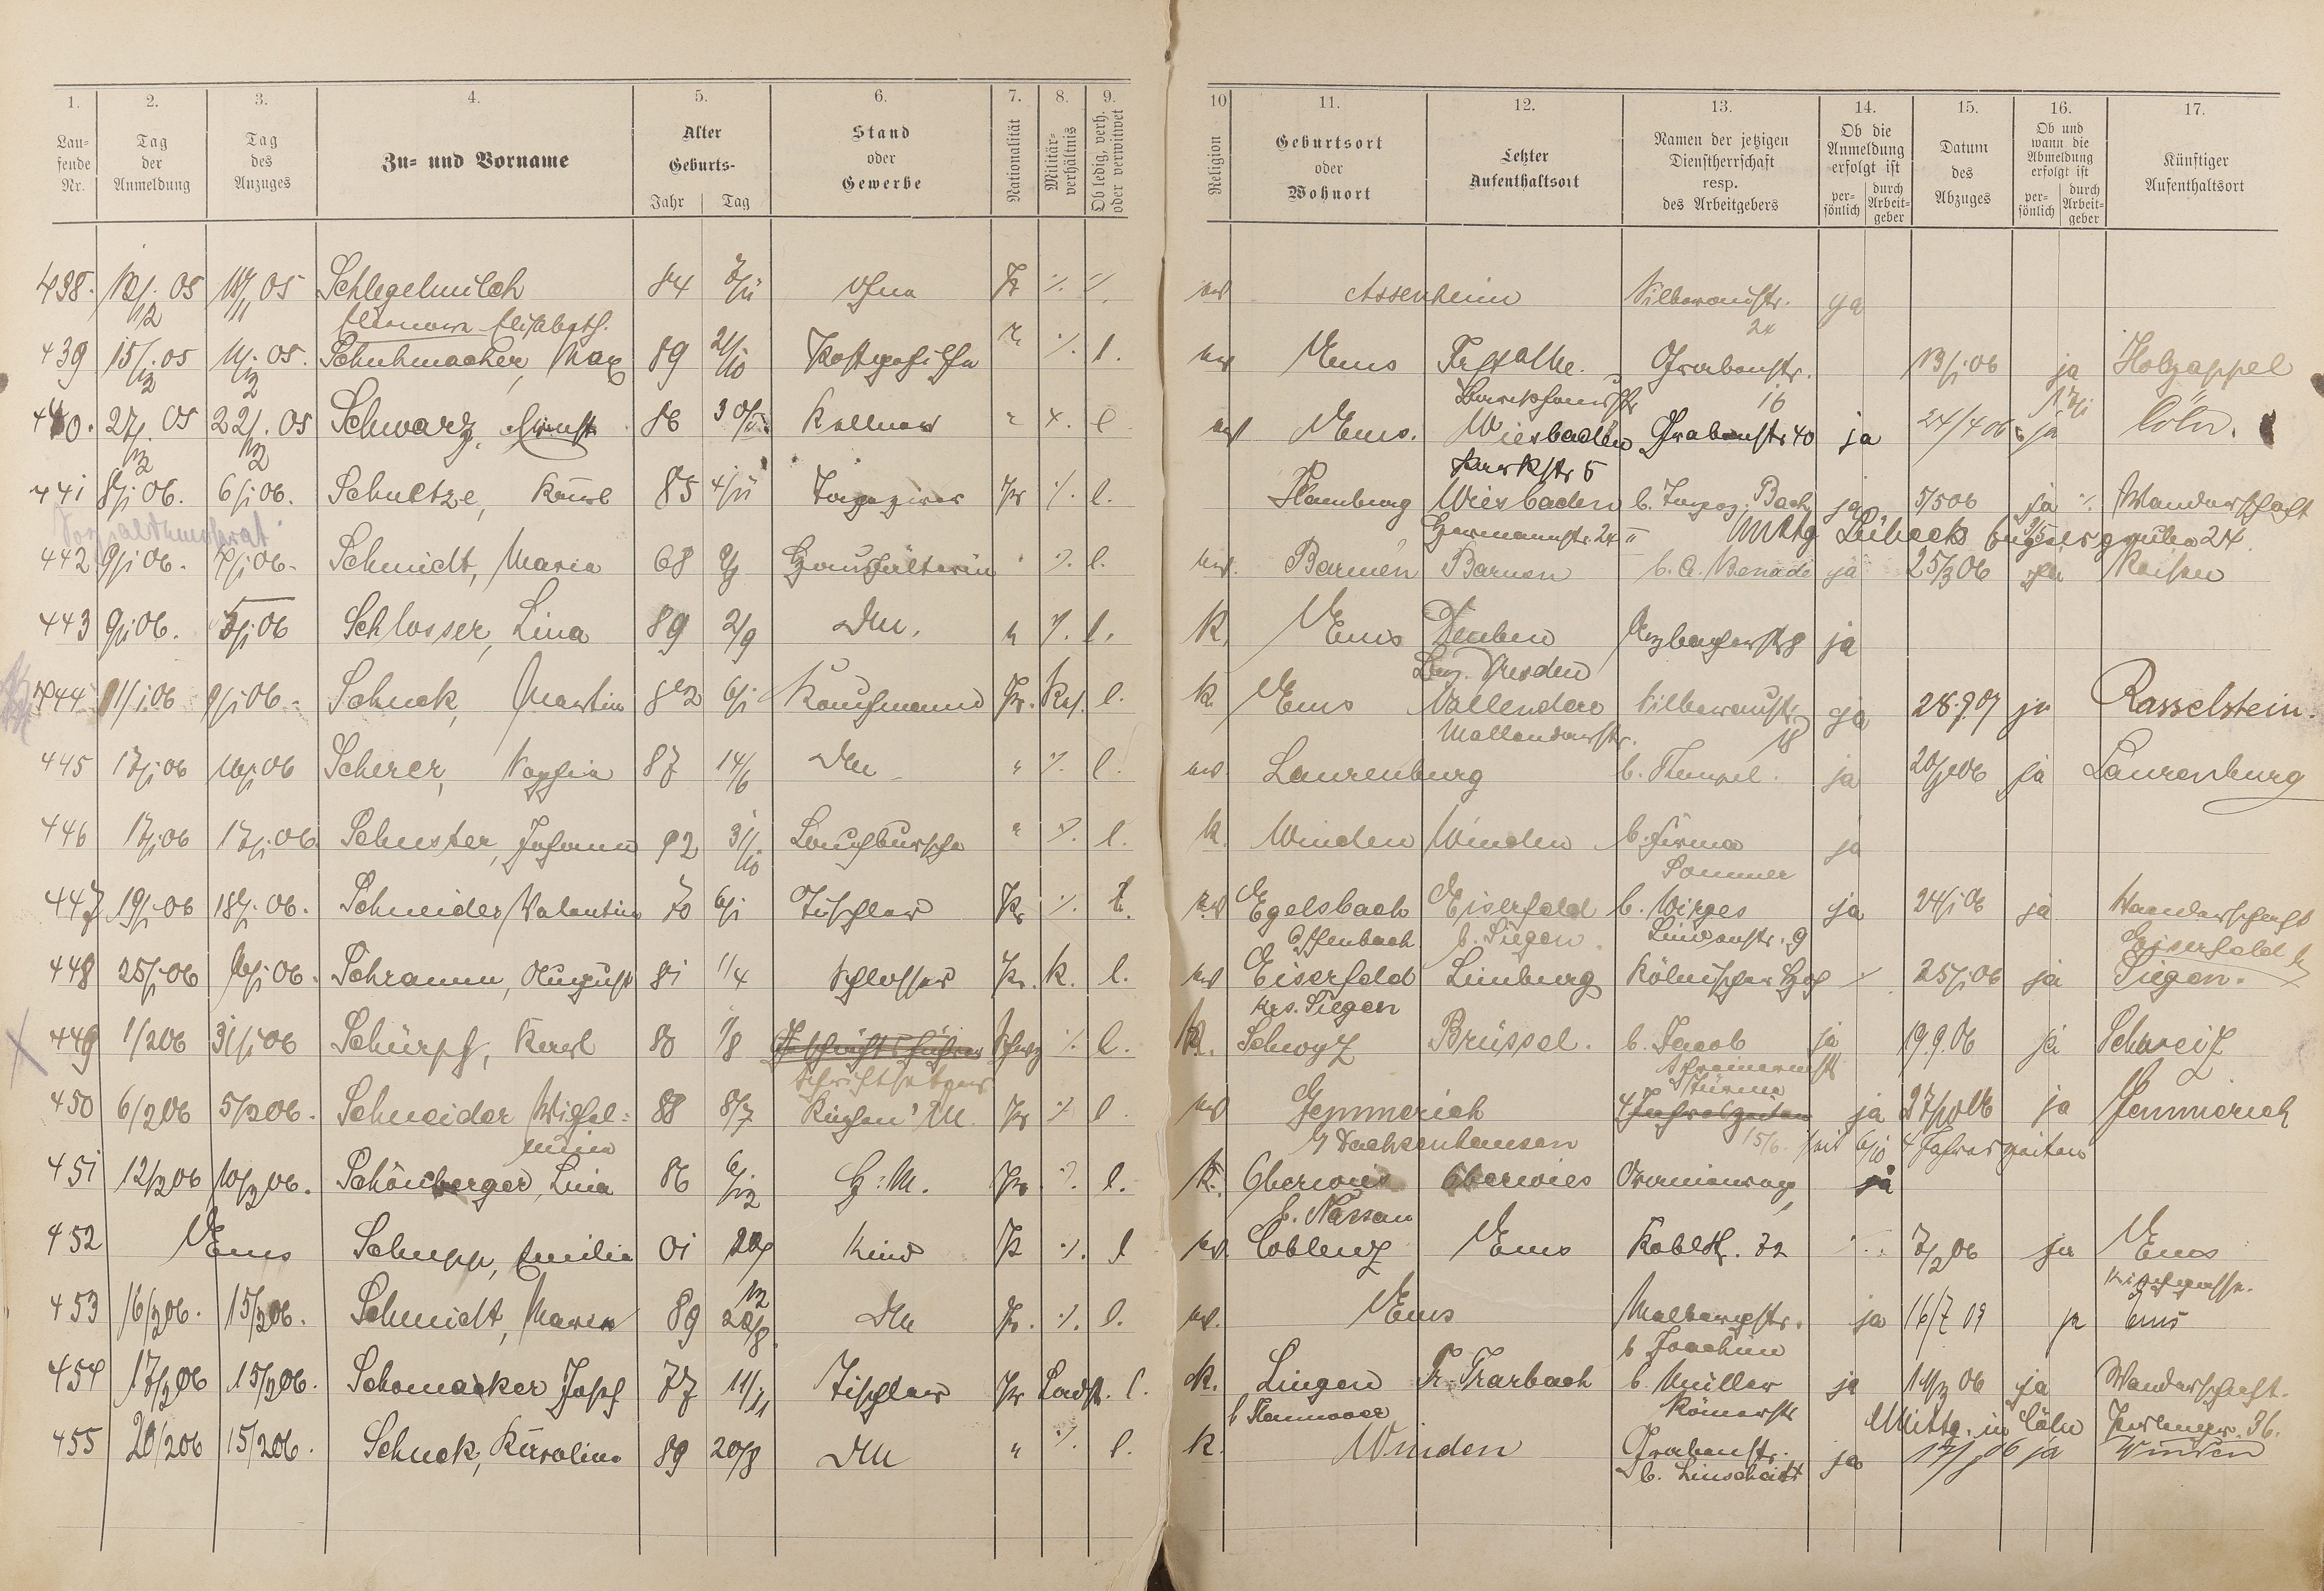 1. 2. 3. 4. 5. 6. 7. 8. 9. 10 11. 12. 13. 14. 15. 16. 17.
Laufende Nr.
Tag der Anmeldung
Tag des Anzuges
Zu- und Vorname
Alter
Geburts-
Jahr Tag
Stand oder Gewerbe
Nationalität
Militär-verhältnis
Ob ledig, verh. oder verwitwet
Religion
Geburtsort oder Wohnort
Letzter Aufenthaltsort
Namen der jetzigen Dienstherrschaft resp. des Arbeitgebers
Ob die Anmeldung erfolgt ist
per-sönlich durch Arbeit-geber
Datum des Abzuges
Ob und wann die Abmeldung erfolgt ist
per-sönlich durch Arbeit-geber
Künftiger Aufenthaltsort
438. 05 05 Schlegelmilch 84 ohne Pr ev Assenheim Silberaustr. ja
Elisabeth. 24
439 15/12 05 05. Schuhmacher, Max 89 21/10 Postgehilfe " ./. l. ev Ems Grabenstr. 13/1 06 ja Holzappel
16
440. 27/12 05 22/12 05 Schwarz, Ernst 86 30/ Kellner " l ev Ems. Wiesbaden Grabenstr 40 ja 24/4 06 ja Cöln.
Parkstr 5
441 8/1 06. 6/1 06. Schultze, Karl 85 Tapezierer Pr ./. l. Hamburg Wiesbaden b. Tapez. Bach ja 5/5 06 ja ./. Wanderschaft
Sozialdemokrat Hermannstr. 24 Mttg Lübeck 24
442 9/1 06. 06. Schmidt, Maria 68 Haushälterin " ./. l. ev. Barmen Barmen b. C. Benade ja 25/3 06 ja Reisen
443 9/1 06. 06 Schlosser, Lina 89 2/9 DM. " ./. l. K. Ems Deuben Arzbacherstr 8 ja
Bez. Dresden
444 11/1 06 9/1 06. Schuck, Martin 82 6/1 Kaufmann Pr. l. K. Ems Vallendar Silberaustr. ja 28.9.07 ja Rasselstein.
Mallendarstr. 18
445 17/1 06 16/1 06 Scherer, Sophie 87 14/6 DM " ./. l. ev. Laurenburg b. Stempel. ja 06 ja Laurenburg
446 17/1 06 17/1 06. Schuster, Johann 92 31/10 Laufbursche " ./. l. k. Winden Winden b. Firma ja
Sommer
447 19/1 06 18/1 06. Schneider, Valentin 70 6/1 Tischler Pr ./. l. ev Egelsbach Eiserfeld b. Wirges ja 24/1 06 ja Wanderschaft
Offenbach b. Siegen. Lindenstr. 9 Eiserfeld b
448 25/1 06 06. Schramm, August 81 1/4 Schlosser Pr. K. l. ev Eiserfeld Limburg Kölnischer Hof 25/1 06 ja Siegen.
Krs. Siegen
449 1/2 06 31/1 06 Schürpf, Karl 80 1/8 Geschäftsführer Schwz ./. l. K. Schwyz Brüssel. b. Jacob ja 19.9.06 ja Schweiz
Schriftsetzer
450 6/2 06 5/2 06. Schneider Wilhel- 88 8/7 Küchen M. Pr ./. l ev Gemmerich 4 Jahreszeiten ja 27/10 06 ja Gemmerich
mine Dachsenhausen 15/6. seit 6/10 4 Jahreszeiten
451 12/2 06 10/2 06. Schönberger, Lina 86 6/12 H: M. Pr. ./. l. K. Oberwies Oberwies Oranienweg ja
b. Nassau
452 Ems Schupp, Emilie 01 Kind Pr ./. l ev. Coblenz Ems Koblstr. 72 ./. 7/2 06 ja Ems
453 16/2 06. 15/2 06. Schmidt, Maria 89 DM Pr. ./. l. ev. Ems Malbergstr. ja 16/7 09 ja Ems
b Joachim
454 17/2 06 15/2 06. Schomacker Josef 77 11/11 Tischler Pr Landst. l. K. Lingen Tr.-Trarbach b. Müller ja 06 ja Wanderschaft.
b Hannover Römerstr Mittg. in Cöln 36.
455 20/2 06 15/2 06. Schuck, Karoline 89 20/8 DM " ./. l. k. Winden Grabenstr. ja 06 ja Winden
b. Linscheidt